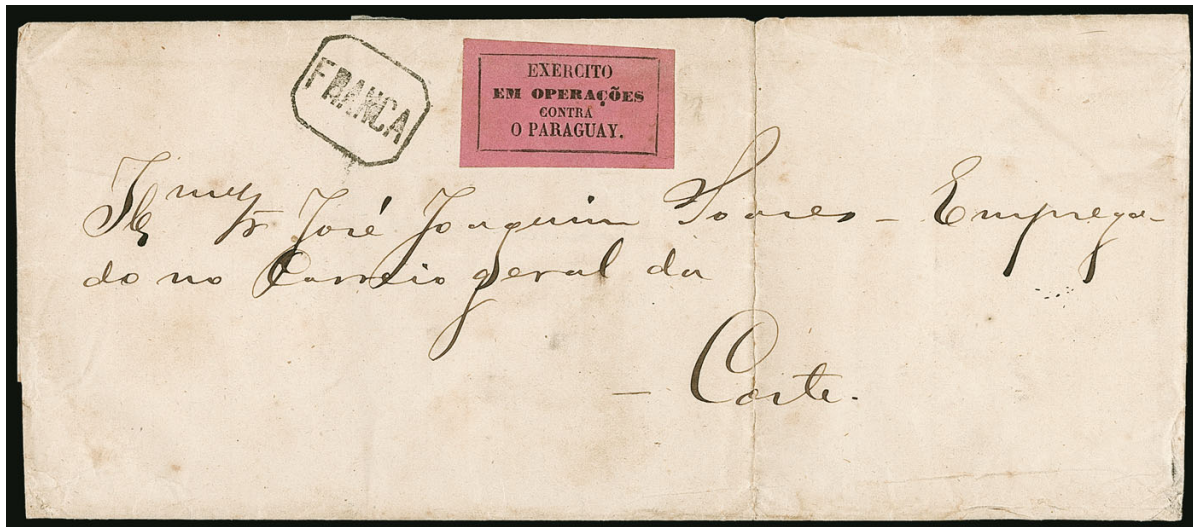 FRANCA
EXERCITO
EM OPERAÇÕES
CONTRA
O PARAGUAY.
Illmo Sr José Joaquim Soares - Emprega-
do no Correio geral da
- Corte.